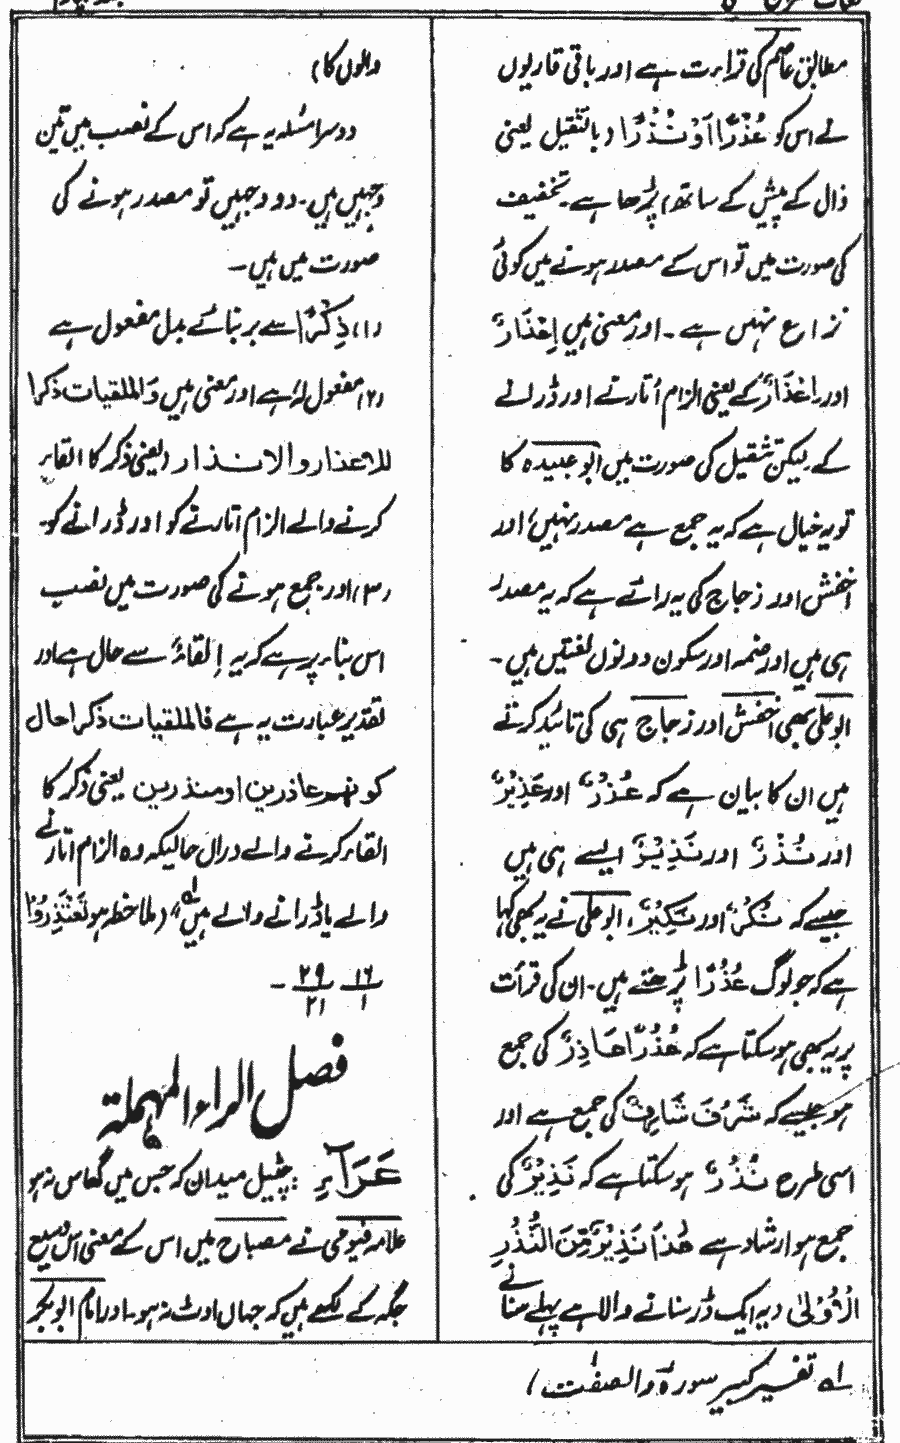 مطابق عاصم کی قرارت ہے اور باقی قاریوں
نے اس کو عُذُرًا اَوْ نُذُرًا (بالتثقیل یعنی
ذال کے پیش کے ساتھ) پڑھا ہے۔ تخفیف
کی صورت میں تو اس کے مصدر ہونے میں کوئی
نزاع نہیں ہے۔ اور معنی ہیں اِعْذَارٌ
اور اِعْذَارٌ کے یعنی الزام اُتارنے اور ڈرانے
کے۔ لیکن تثقیل کی صورت میں ابو عبیدہ کا
تو یہ خیال ہے کہ یہ جمع ہے مصدر نہیں، اور
اخفش اور زجاج کی یہ رائے ہے کہ یہ مصدر
ہی ہیں اور ضمہ اور سکون دونوں لغتیں ہیں۔
ابو علی بھی اخفش اور زجاج ہی کی تائید کرتے
ہیں ان کا بیان ہے کہ عُذُرٌ اور عَذِیْرٌ
اور نُذُرٌ اور نَذِیْرٌ ایسے ہی ہیں
جیسے کہ نُکُرٌ اور نَکِیْرٌ، ابو علی نے یہ بھی کہا
ہے کہ جو لوگ عُذُرًا پڑھتے ہیں۔ ان کی قرأت
پر یہ بھی ہو سکتا ہے کہ عُذُرًا عَاذِرٌ کی جمع
ہو جیسے کہ شَرُفَ شَارِفٌ کی جمع ہے اور
اسی طرح نُذُرٌ ہو سکتا ہے کہ نَذِیْرٌ کی
جمع ہو ارشاد ہے هٰذَا نَذِیْرٌ مِّنَ النُّذُرِ
الْاُوْلٰی (یہ ایک ڈر سنانے والا ہے پہلے سنانے
والوں کا)
دوسرا مسئلہ یہ ہے کہ اس کے نصب میں تین
وجہیں ہیں۔ دو وجہیں تو مصدر ہونے کی
صورت میں ہیں۔
(۱) ذِکْرًا سے بر بنائے بدل مفعول ہے
(۲) مفعول لہٗ ہے اور معنی ہیں وَالملقیات ذکرا
للاعذار والانذار (یعنی ذکر کا القاء
کرنے والے الزام اتارنے کو اور ڈرانے کو۔
(۳) اور جمع ہونے کی صورت میں نصب
اس بناء پر ہے کہ یہ اِلقاءٌ سے حال ہے اور
تقدیر عبارت یہ ہے فالملقیات ذکرا حال
کونھم عاذرین او منذرین یعنی ذکر کا
القاء کرنے والے درآں حالیکہ وہ الزام اتارنے
والے یا ڈرانے والے ہیں لہ" (ملاحظہ ہو تَعْتَذِرُوْا
۱۶/۱ ۲۹/۲۱ ۔
فصل الراء المہملة
عَرَآءِ : چٹیل میدان کہ جس میں گھاس نہ ہو
علامہ فیومی نے مصباح میں اس کے معنی اس وسیع
جگہ کے لکھے ہیں کہ جہاں اوٹ نہ ہو۔ اور امام ابو بکر
لہ تفسیر کبیر سورۃ والصفٰت)